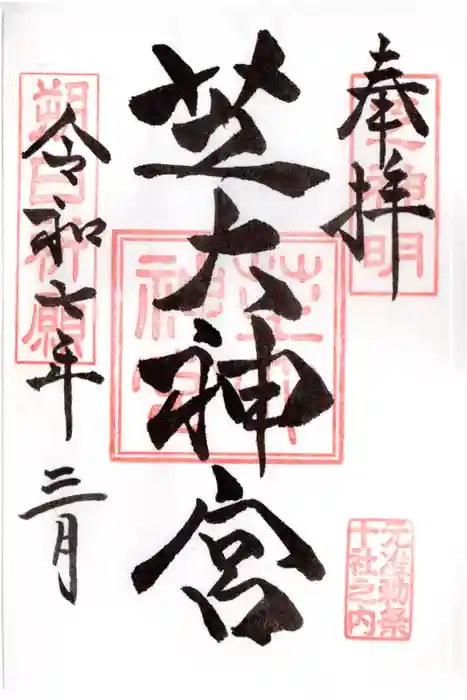 奉拝
芝神明
芝大神宮
芝大神宮
令和七年 三月
朔日祈願
元准勅祭
十社之内